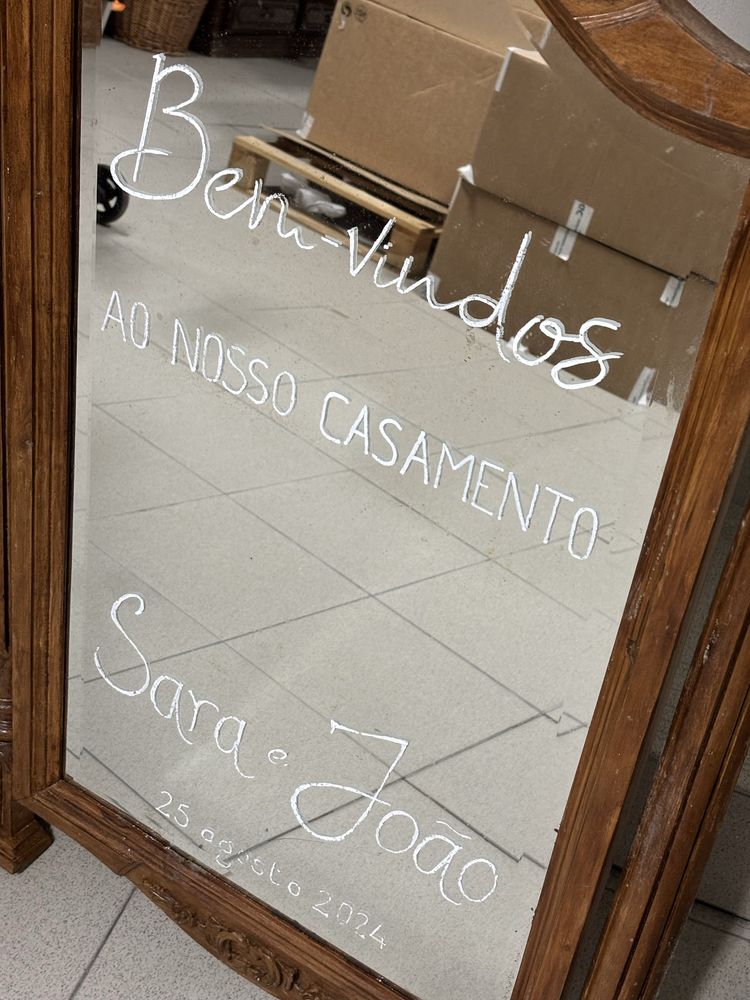 Bem-Vindos
AO NOSSO CASAMENTO
Sara e João
25 agosto 2024